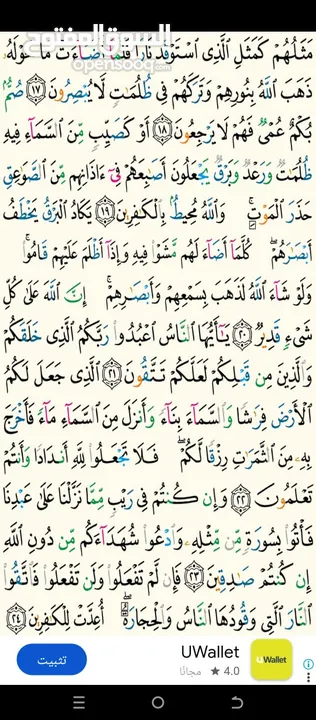 السوق المفتوح
opensooq.com
مَثَلُهُمْ كَمَثَلِ ٱلَّذِى ٱسْتَوْقَدَ نَارًا فَلَمَّآ أَضَآءَتْ مَا حَوْلَهُۥ
ذَهَبَ ٱللَّهُ بِنُورِهِمْ وَتَرَكَهُمْ فِى ظُلُمَٰتٍ لَّا يُبْصِرُونَ ١٧ صُمٌّۢ
بُكْمٌ عُمْىٌ فَهُمْ لَا يَرْجِعُونَ ١٨ أَوْ كَصَيِّبٍ مِّنَ ٱلسَّمَآءِ فِيهِ
ظُلُمَٰتٌ وَرَعْدٌ وَبَرْقٌ يَجْعَلُونَ أَصَٰبِعَهُمْ فِىٓ ءَاذَانِهِم مِّنَ ٱلصَّوَٰعِقِ
حَذَرَ ٱلْمَوْتِ ۚ وَٱللَّهُ مُحِيطٌۢ بِٱلْكَٰفِرِينَ ١٩ يَكَادُ ٱلْبَرْقُ يَخْطَفُ
أَبْصَٰرَهُمْ ۖ كُلَّمَآ أَضَآءَ لَهُم مَّشَوْا۟ فِيهِ وَإِذَآ أَظْلَمَ عَلَيْهِمْ قَامُوا۟ ۚ
وَلَوْ شَآءَ ٱللَّهُ لَذَهَبَ بِسَمْعِهِمْ وَأَبْصَٰرِهِمْ ۚ إِنَّ ٱللَّهَ عَلَىٰ كُلِّ
شَىْءٍ قَدِيرٌ ٢٠ يَٰٓأَيُّهَا ٱلنَّاسُ ٱعْبُدُوا۟ رَبَّكُمُ ٱلَّذِى خَلَقَكُمْ
وَٱلَّذِينَ مِن قَبْلِكُمْ لَعَلَّكُمْ تَتَّقُونَ ٢١ ٱلَّذِى جَعَلَ لَكُمُ
ٱلْأَرْضَ فِرَٰشًا وَٱلسَّمَآءَ بِنَآءً وَأَنزَلَ مِنَ ٱلسَّمَآءِ مَآءً فَأَخْرَجَ
بِهِۦ مِنَ ٱلثَّمَرَٰتِ رِزْقًا لَّكُمْ ۖ فَلَا تَجْعَلُوا۟ لِلَّهِ أَندَادًا وَأَنتُمْ
تَعْلَمُونَ ٢٢ وَإِن كُنتُمْ فِى رَيْبٍ مِّمَّا نَزَّلْنَا عَلَىٰ عَبْدِنَا
فَأْتُوا۟ بِسُورَةٍ مِّن مِّثْلِهِۦ وَٱدْعُوا۟ شُهَدَآءَكُم مِّن دُونِ ٱللَّهِ
إِن كُنتُمْ صَٰدِقِينَ ٢٣ فَإِن لَّمْ تَفْعَلُوا۟ وَلَن تَفْعَلُوا۟ فَٱتَّقُوا۟
ٱلنَّارَ ٱلَّتِى وَقُودُهَا ٱلنَّاسُ وَٱلْحِجَارَةُ ۖ أُعِدَّتْ لِلْكَٰفِرِينَ ٢٤
UWallet
4.0 ★ مجانًا
تثبيت
UWallet